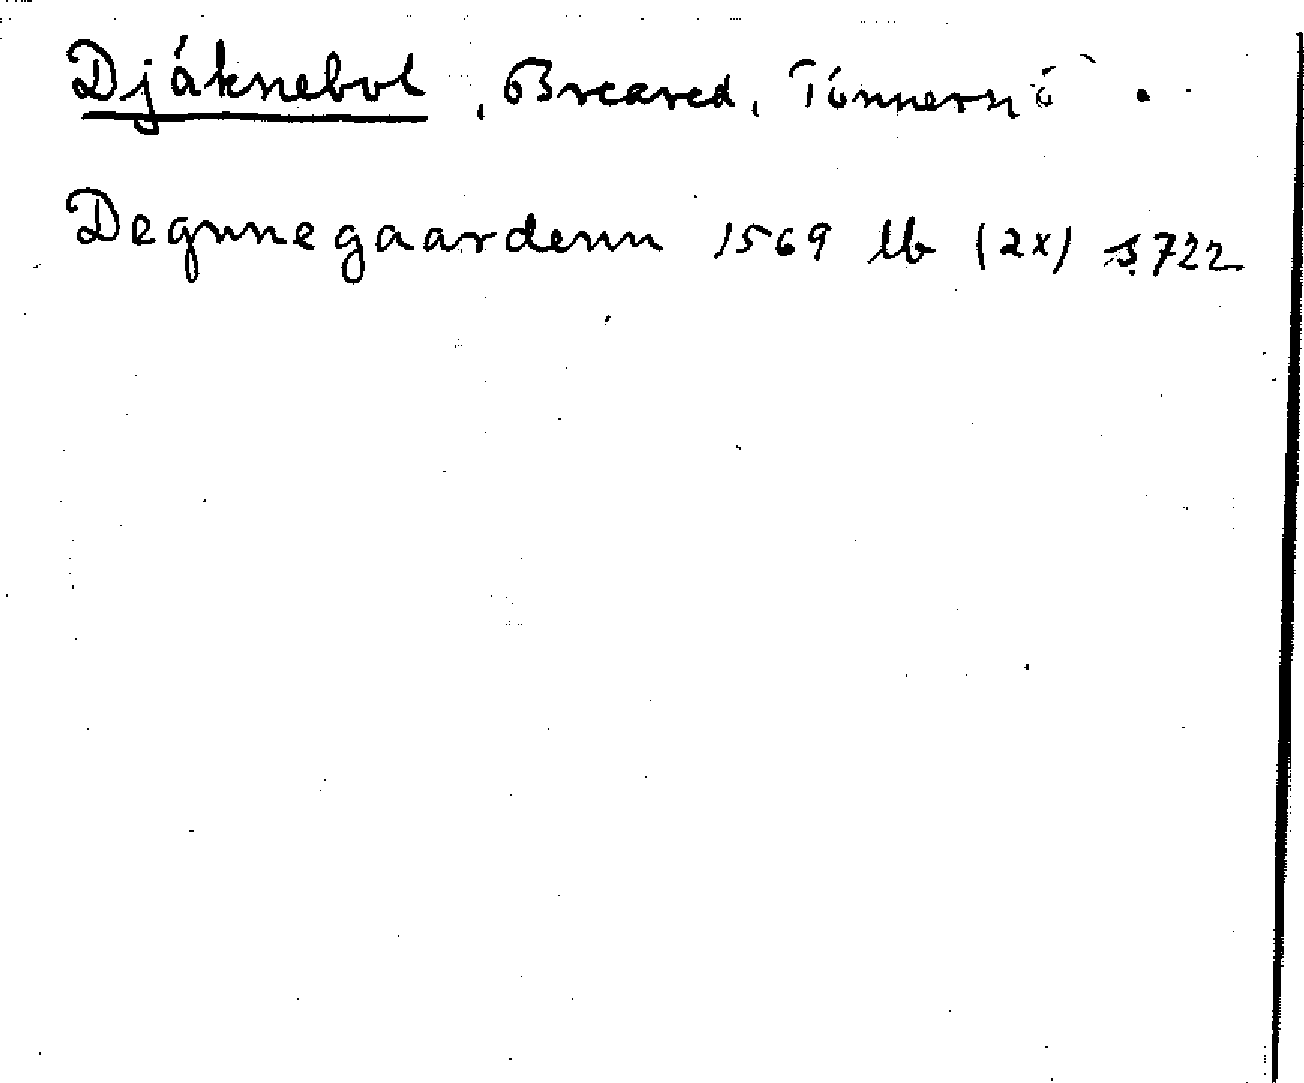 Djäknebol, Breared, Tönnersjö.
Degnnegaardenn 1569 lb (2x) s. 722